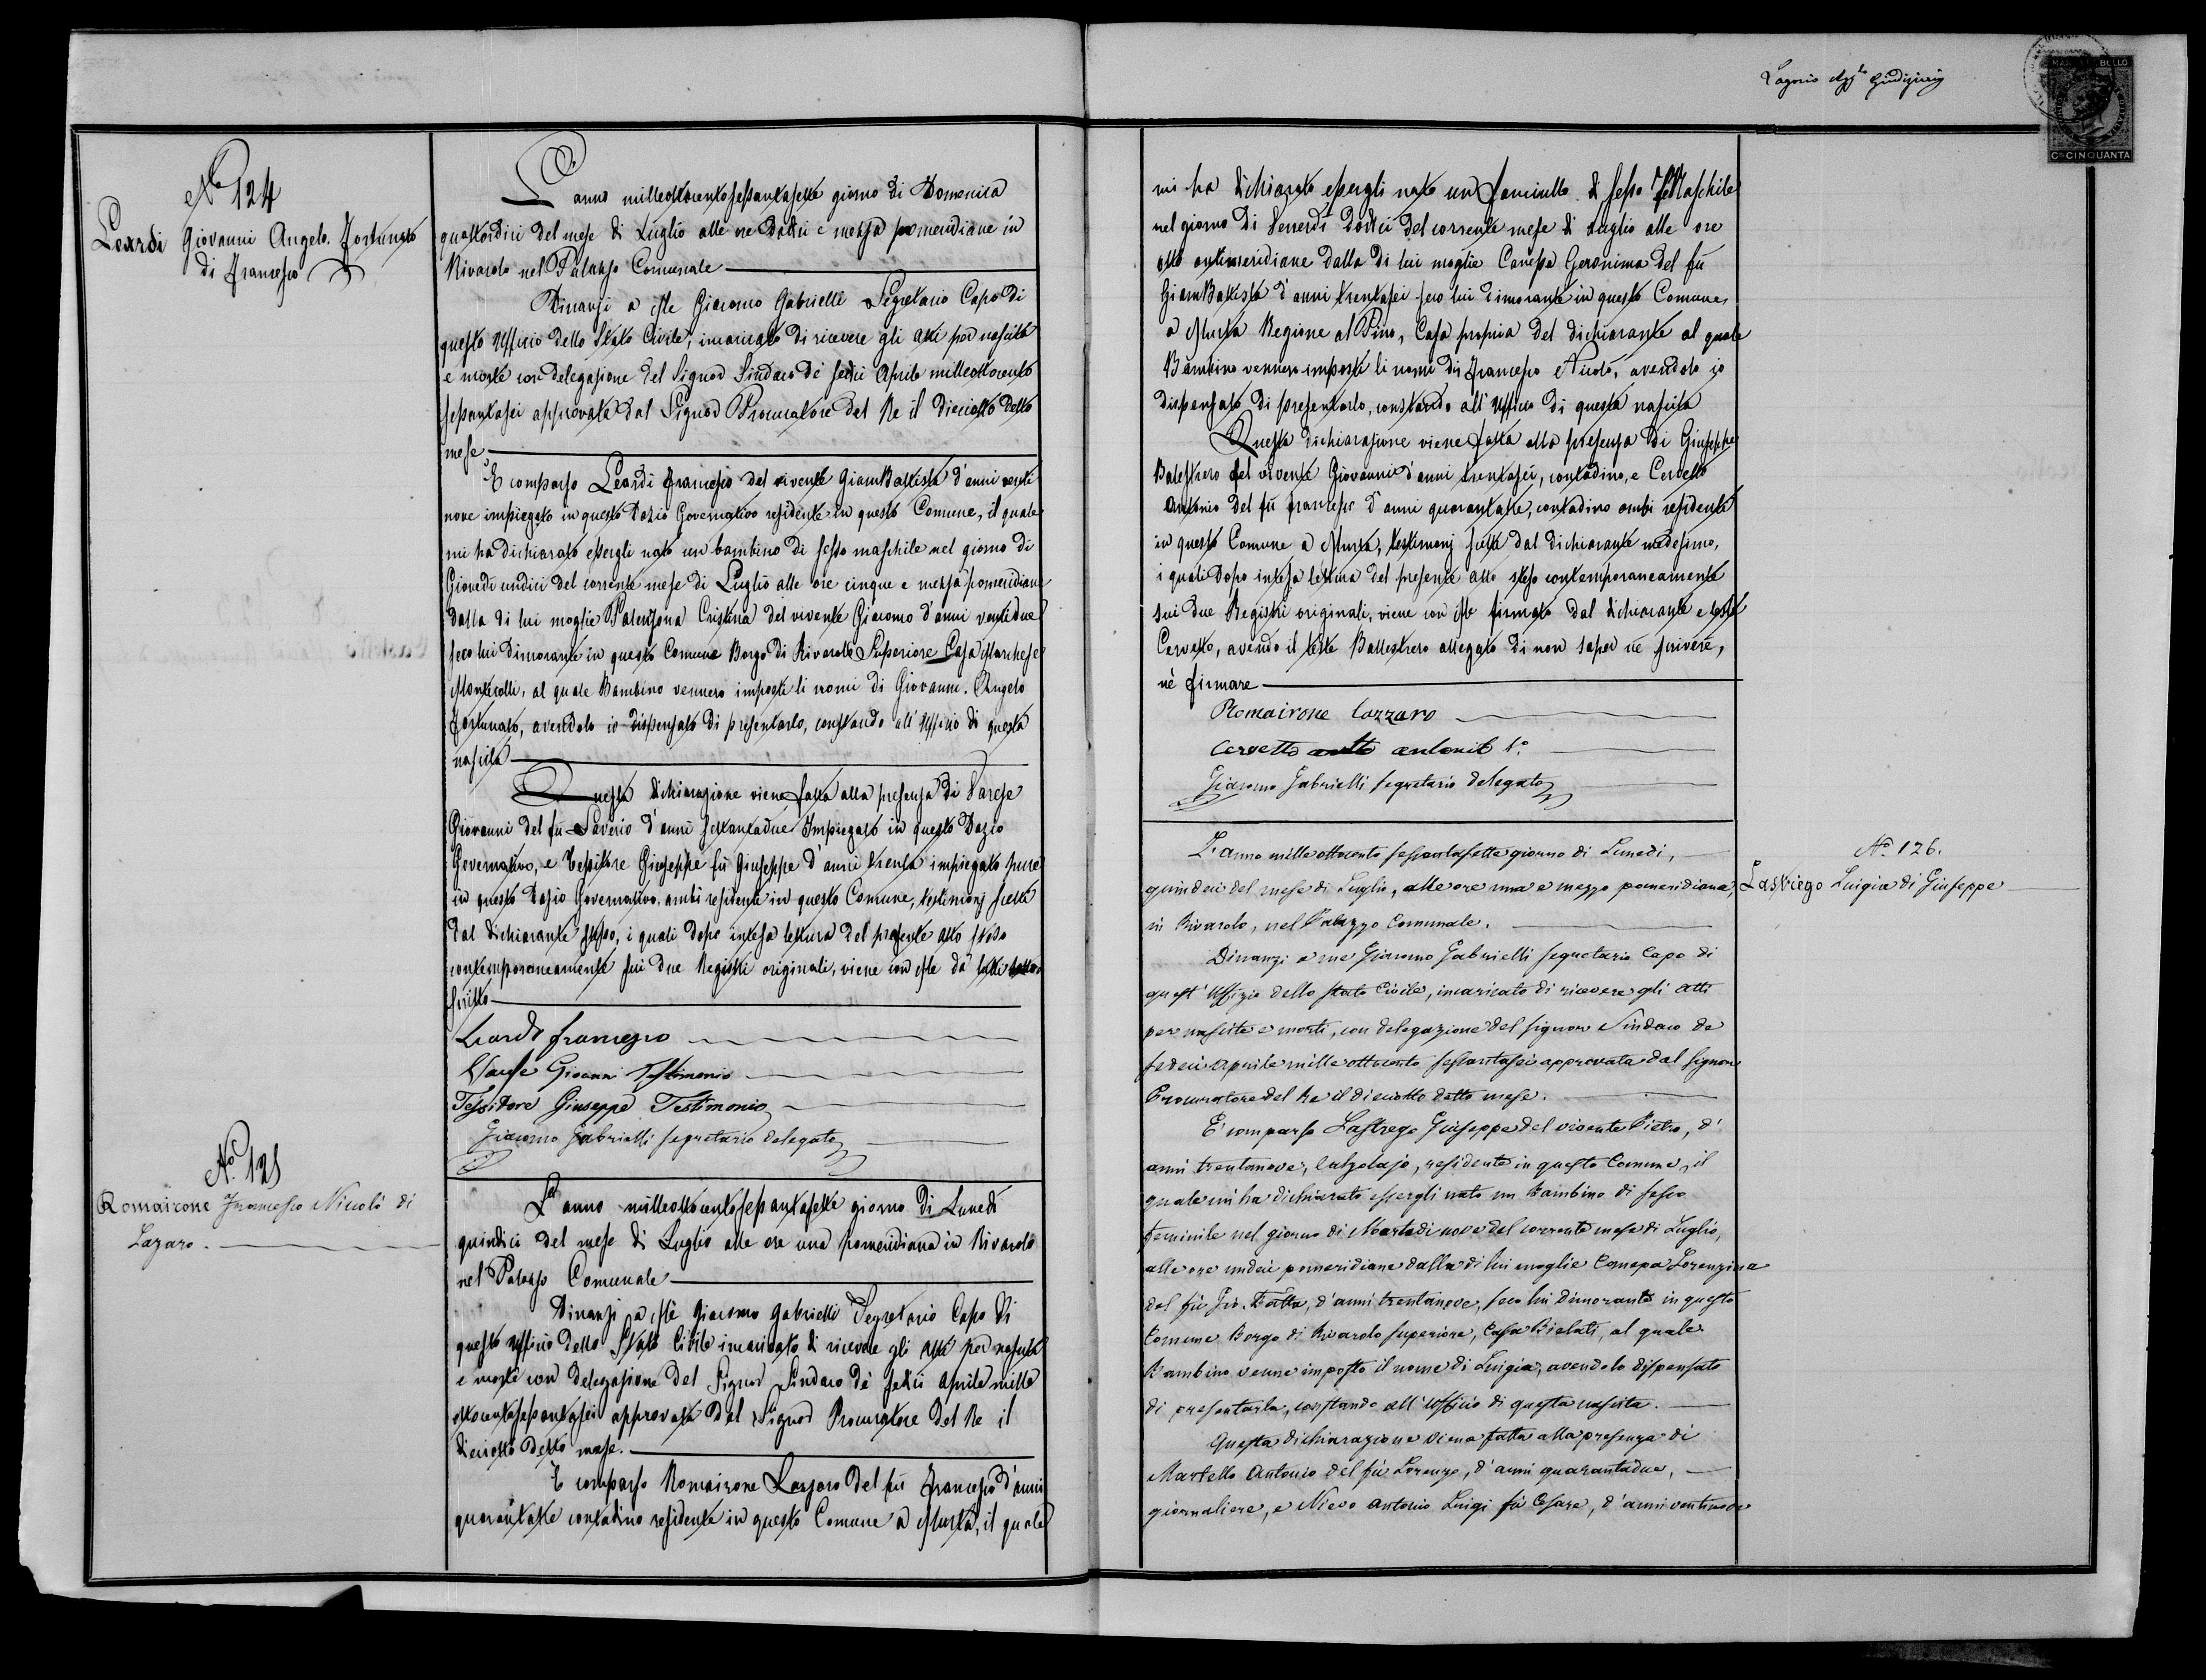 No 124
Leardi Giovanni Angelo. Fortunato
di Francesco
L'anno milleottocentosessantasette giorno di Domenica
quattordici del mese di Luglio alle ore Dodici e mezza pomeridiane in
Rivarolo nel Palazzo Comunale
Dinanzi a Me Giacomo Gabrielli Segretario Capo di
questo Ufficio dello Stato Civile, incaricato di ricevere gli atti per nascite
e morte con delegazione del Signor Sindaco de' sedici Aprile milleottocento
sessantasei approvata dal Signor Procuratore del Re il dieciotto detto
mese
È comparso Leardi Francesco del vivente GiamBattista d'anni venti
nove impiegato in questo Dazio Governativo residente in questo Comune, il quale
mi ha dichiarato essergli nato un bambino di sesso maschile nel giorno di
Giovedì undici del corrente mese di Luglio alle ore cinque e mezza pomeridiane
dalla di lui moglie Patenzona Cristina del vivente Giacomo d'anni ventidue
seco lui dimorante in questo Comune Borgo di Rivarolo Superiore Casa Marchese
al quale Bambino vennero imposti li nomi di Giovanni. Angelo
Fortunato, avendolo io dispensato di presentarlo, constando all'Ufficio di questa
nascita
Questa dichiarazione viene fatta alla presenza di Varese
Giovanni del fu Saverio d'anni settantadue Impiegato in questo Dazio
Governativo, e Tessitore Giuseppe fu Giuseppe d'anni trenta impiegato pure
in questo Dazio Governativo, ambi residenti in questo Comune, testimonj scelti
dal dichiarante stesso, i quali dopo intesa lettura del presente atto steso
contemporaneamente sui due Registri originali, viene con Me da tutti sotto
scritto
Leardi Francesco
Varese Giovanni Testimonio
Tessitore Giuseppe Testimonio
Giacomo Gabrielli segretario delegato
No. 125
Romairone Francesco Niccolò di
Lazaro.
L'anno milleottocentosessantasette giorno di Lunedì
quindici del mese di Luglio alle ore una pomeridiana in Rivarolo
nel Palazzo Comunale
Dinanzi a Me Giacomo Gabrielli Segretario Capo di
questo Ufficio dello Stato Civile incaricato di ricevere gli atti per nascite
e morte con delegazione del Signor Sindaco de' sedici Aprile mille
ottocentosessantasei approvata dal Signor Procuratore del Re il
dieciotto detto mese.
È comparso Romairone Lazzaro del fu Francesco d'anni
contadino residente in questo Comune a Murta, il quale
Lagorio Giudiziario
MARCA DA BOLLO
Cmi CINQUANTA
mi ha dichiarato essergli nato un fanciullo di sesso Maschile
nel giorno di Venerdì dodici del corrente mese di Luglio alle ore
otto antimeridiane dalla di lui moglie Canepa Geronima del fu
GiamBattista d'anni trentasei seco lui dimorante in questo Comune,
a Murta Regione al Pino, Casa propria del dichiarante al quale
Bambino vennero imposti li nomi di Francesco Nicolò, avendolo io
dispensato di presentarlo, constando all'Ufficio di questa nascita
Questa dichiarazione viene fatta alla presenza di Giuseppe
Balestrero del vivente Giovanni d'anni trentasei, contadino, e Cervetto
Antonio del fu Francesco d'anni contadino ambi residenti
in questo Comune a Murta, testimonj scelti dal dichiarante medesimo,
i quali dopo intesa lettura del presente atto steso contemporaneamente
sui due Registri originali, viene con Me firmato dal dichiarante e teste
Cervetto, avendo il teste Ballestrero allegato di non saper nè scrivere,
nè firmare
Romairone Lazzaro
Cervetto antonio to
Giacomo Gabrielli segretario delegato
No. 126.
Lastrego Luigia di Giuseppe
L'anno mille ottocento sessantasette giorno di Lunedì,
quindici del mese di Luglio, alle ore una e mezzo pomeridiana,
in Rivarolo, nel Palazzo Comunale.
Dinanzi a me Giacomo Gabrielli segretario Capo di
quest'Uffizio dello Stato Civile, incaricato di ricevere gli Atti
per nascite e morti, con delegazione del signor Sindaco de
sedici aprile mille ottocento sessantasei approvata dal Signor
Procuratore del Re il dieciotto detto mese.
È comparso Lastrego Giuseppe del vivente Pietro, d'
anni trentanove, Calzolajo, residente in questo Comune, il
quale mi ha dichiarato essergli nato un Bambino di sesso
feminile nel giorno di Martedì nove del corrente mese di Luglio,
alle ore undici pomeridiane dalla di lui moglie Canepa Lorenzina
del fù Gio. Batta, d'anni trentanove, seco lui Dimorante in questo
Comune Borgo di Rivarolo superiore, Casa al quale
Bambino venne imposto il nome di Luigia, avendolo dispensato
di presentarla, constando all'Ufficio di questa nascita.
Questa dichiarazione viene fatta alla presenza di
Martello Antonio del fù Lorenzo, d'anni quarantadue,
giornaliere, e Nievo Antonio Luigi fù Cesare, d'anni ventinove